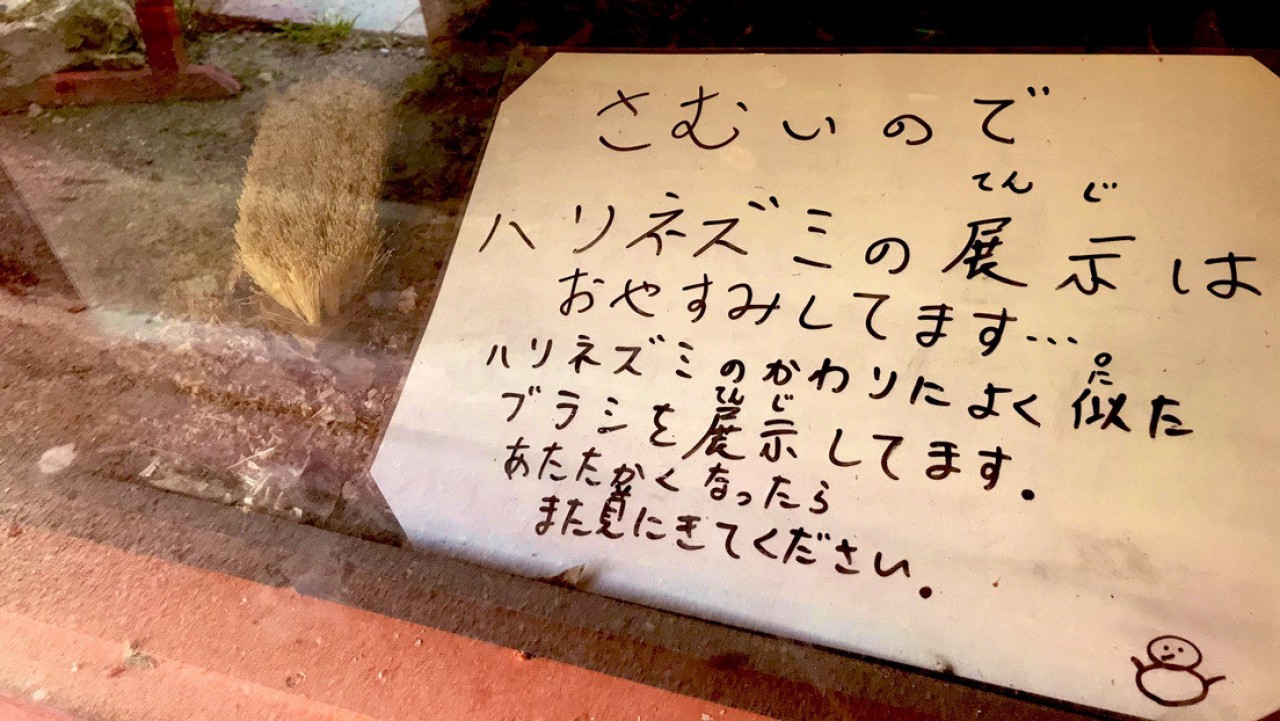 さむいので
てんじ
ハリネズミの展示は
おやすみしてます…
に
ハリネズミのかわりによく似た
てんじ
ブラシを展示してます。
あたたかくなったら
み
また見にきてください。